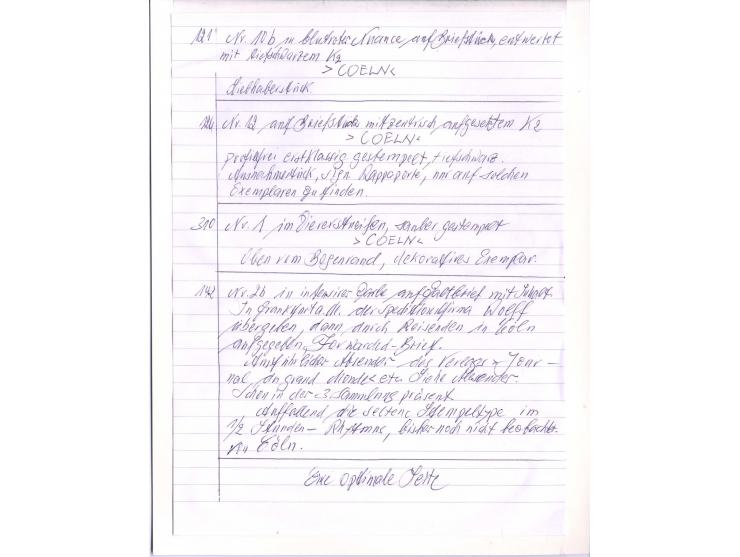 121 Nr. 10b in blutroter Nuance, auf Briefstück, entwertet
mit tiefschwarzem K2
>COELN<
Liebhaberstück.
124 Nr. 12 auf Briefstück mit zentrisch aufgesetztem K2
>COELN<
erstklassig gestempelt, tiefschwarz.
Ausnahmestück, sign. Rappaport, nur auf solchen
Exemplaren zu finden.
310 Nr. 1 im Viererstreifen, sauber gestempelt
>COELN<
Oben vom Bogenrand, dekoratives Exemplar.
142 Nr. 2b in intensiver Farbe auf Faltbrief mit Inhalt.
In Frankfurt a.M. der Speditionsfirma Wolff
übergeben, dann durch Reisenden in Cöln
aufgegeben, Forwarded-Brief.
Absender des
nal, Siehe
Schon in der 3. Sammlung präsent
Auffallend die seltene Stempeltype im
1/2 Stunden-Rhytmus, bisher noch nicht beobachtet
Cöln.
Eine optimale Seite